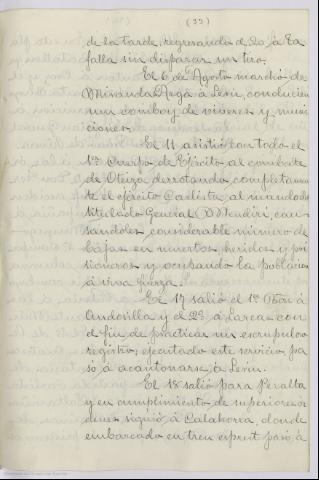 (22)
de la tarde, regresando el 20, á Ta
falla sin disparar un tiro.
El 6 de Agosto marchó de
Miranda Arga á Lerin, conducien
un comboy de viveres y muni
ciones.
El 11 asistió con todo el
1er Cuerpo de Ejército al combate
de Oteiza derrotando completamen
te el ejército Carlista al mando del
titulado General Mendiri, cau
sandoles considerable número de
bajas en muertos, heridos y pri
sioneros y ocupando la poblacion
á viva fuerza.
El 17 salió el 1er Bon á
Andosilla y el 2º á Larca con
el fin de practicar un escrupuloso
registro; ejecutado este servicio pa
só á acantonarse á Lerin.
El 18 salió para Peralta
y en cumplimiento de superiores or
denes siguió á Calahorra, donde
embarcado en tren espert pasó á